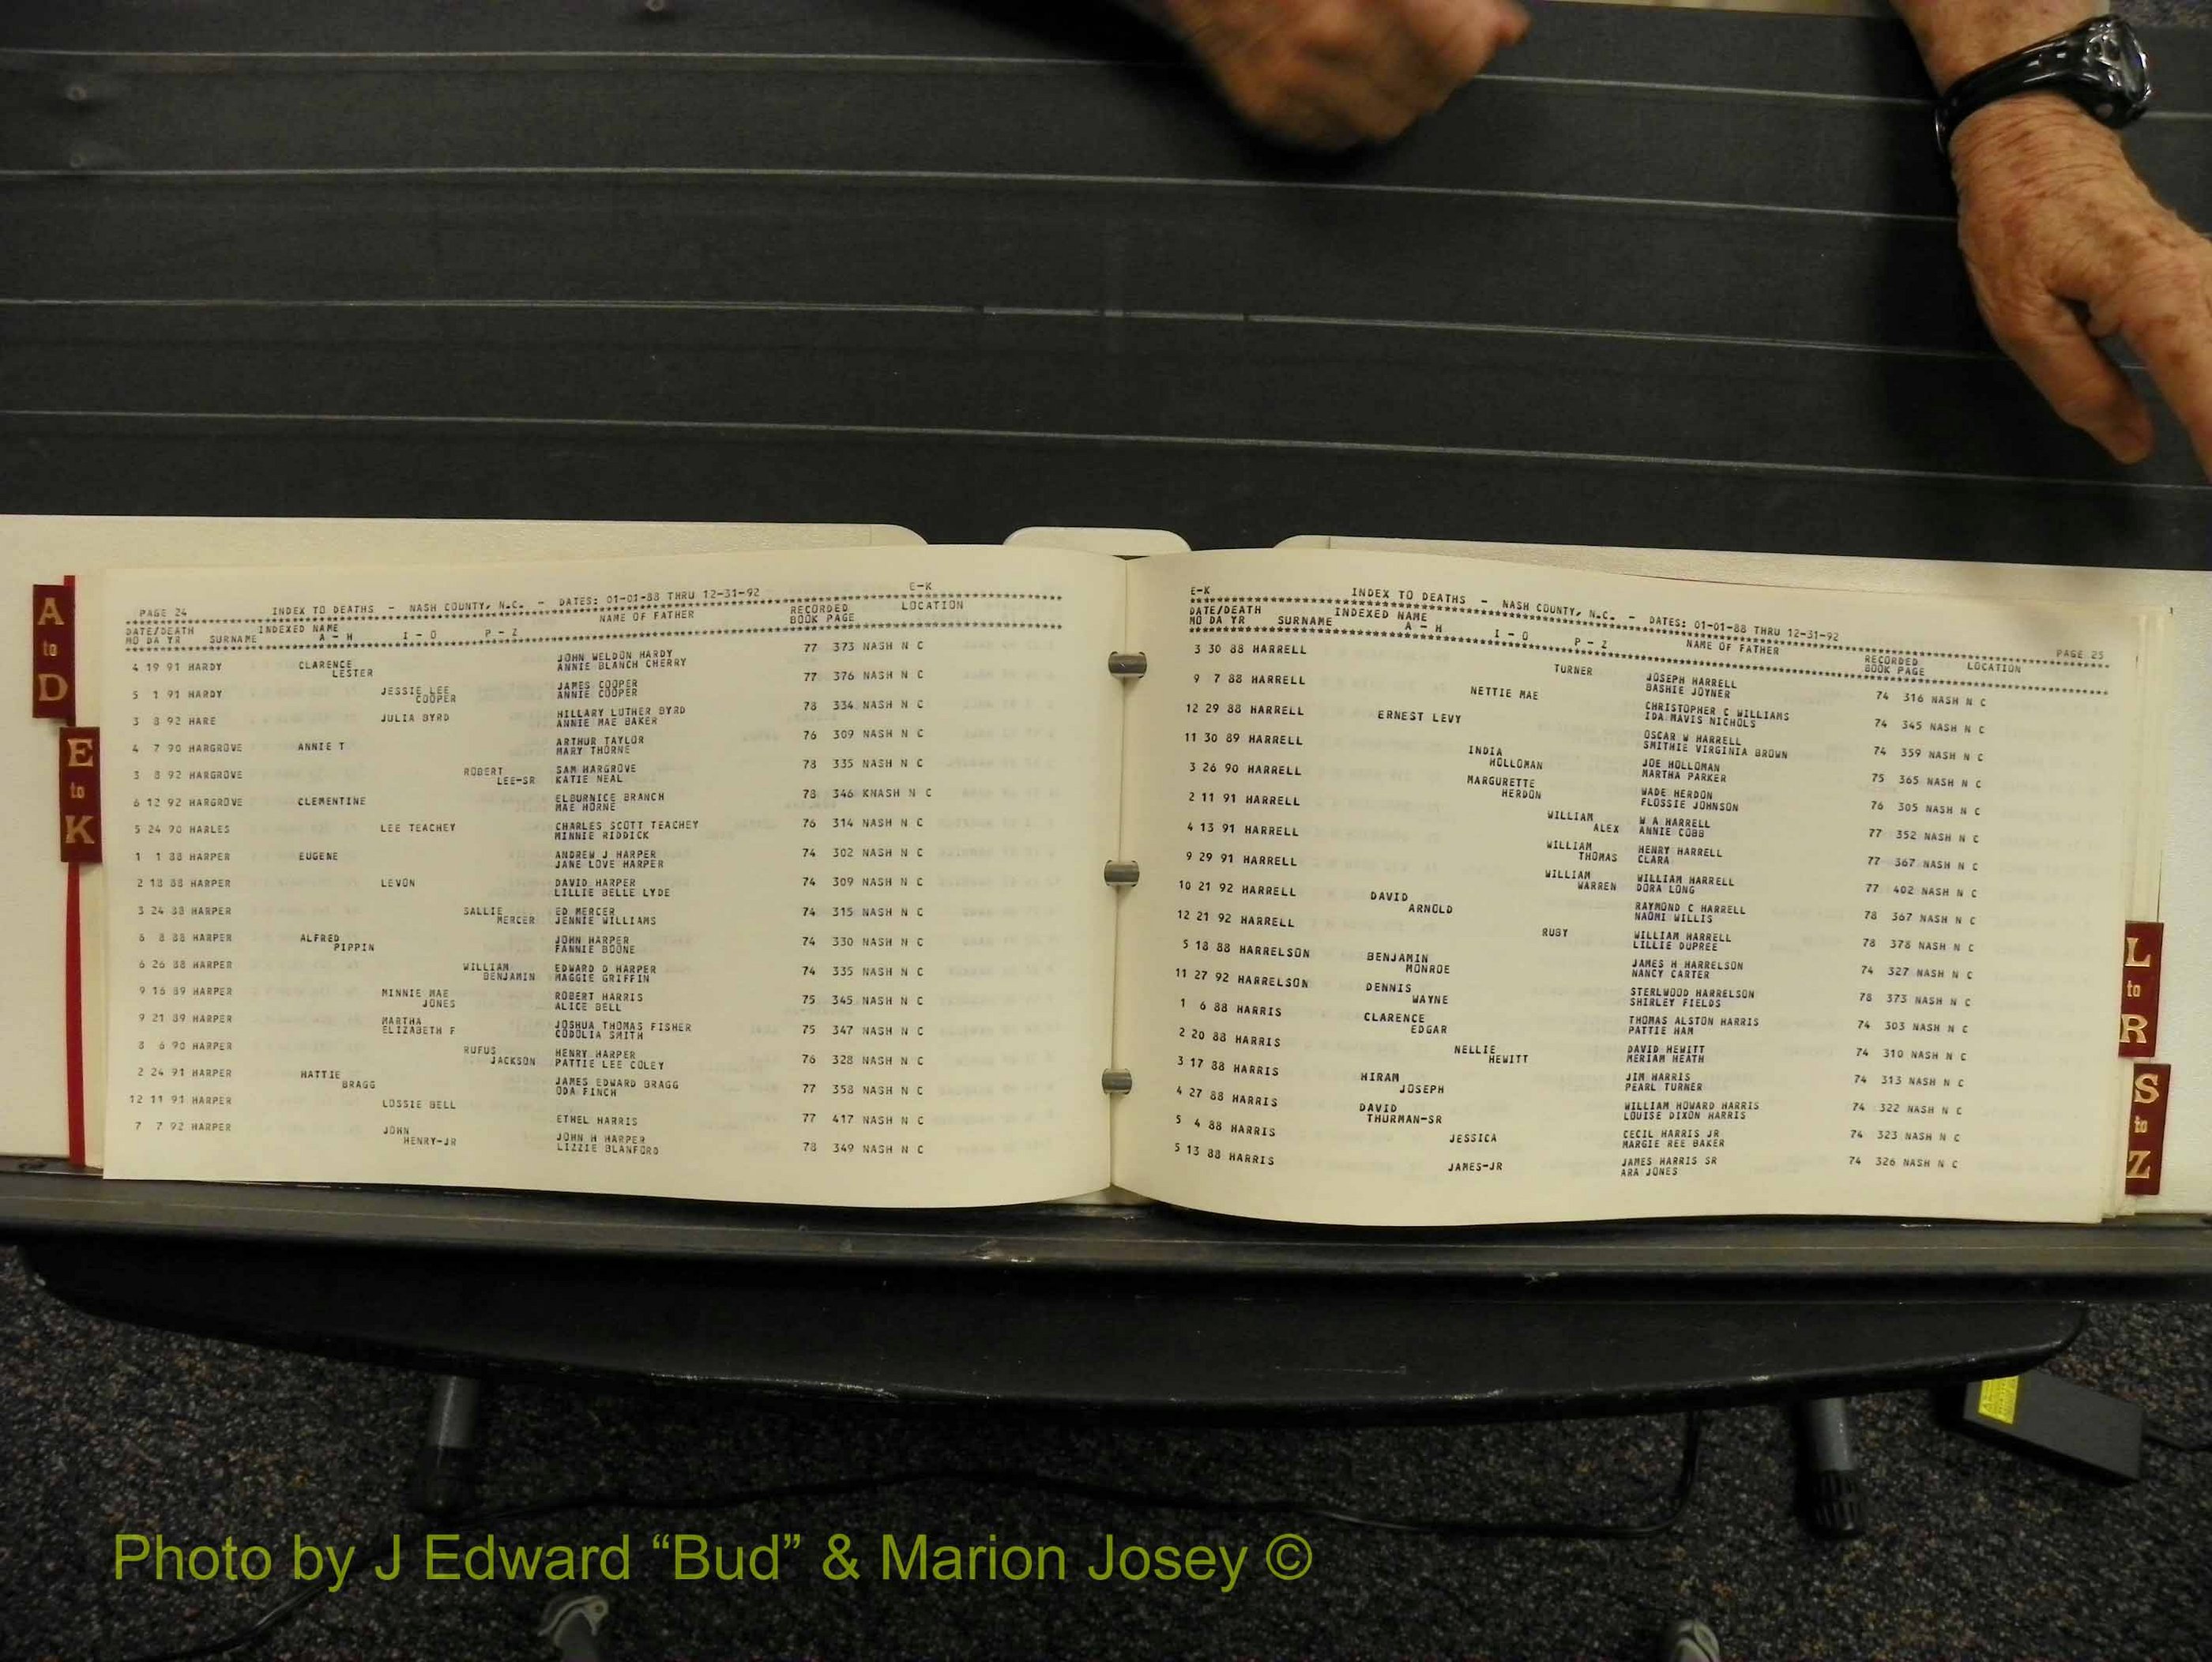 A
to
D
E
to
K
PAGE 24 INDEX TO DEATHS - NASH COUNTY, N.C. - DATES: 01-01-88 THRU 12-31-92 E-K
DATE/DEATH INDEXED NAME NAME OF FATHER RECORDED LOCATION
MO DA YR SURNAME A - H I - O P - Z BOOK PAGE
4 19 91 HARDY CLARENCE JOHN WELDON HARDY 77 373 NASH N C
LESTER ANNIE BLANCH CHERRY
5 1 91 HARDY JESSIE LEE JAMES COOPER 77 376 NASH N C
COOPER ANNIE COOPER
3 8 92 HARE JULIA BYRD HILLARY LUTHER BYRD 78 334 NASH N C
ANNIE MAE BAKER
4 7 90 HARGROVE ANNIE T ARTHUR TAYLOR 76 309 NASH N C
MARY THORNE
3 8 92 HARGROVE ROBERT SAM HARGROVE 78 335 NASH N C
LEE-SR KATIE NEAL
6 12 92 HARGROVE CLEMENTINE ELBURNICE BRANCH 78 346 KNASH N C
MAE HORNE
5 24 90 HARLES LEE TEACHEY CHARLES SCOTT TEACHEY 76 314 NASH N C
MINNIE RIDDICK
1 1 88 HARPER EUGENE ANDREW J HARPER 74 302 NASH N C
JANE LOVE HARPER
2 18 88 HARPER LEVON DAVID HARPER 74 309 NASH N C
LILLIE BELLE LYDE
3 24 88 HARPER SALLIE ED MERCER 74 315 NASH N C
MERCER JENNIE WILLIAMS
6 8 88 HARPER ALFRED JOHN HARPER 74 330 NASH N C
PIPPIN FANNIE BOONE
6 26 88 HARPER WILLIAM EDWARD D HARPER 74 335 NASH N C
BENJAMIN MAGGIE GRIFFIN
9 16 89 HARPER MINNIE MAE ROBERT HARRIS 75 345 NASH N C
JONES ALICE BELL
9 21 89 HARPER MARTHA JOSHUA THOMAS FISHER 75 347 NASH N C
ELIZABETH F CODOLIA SMITH
8 6 90 HARPER RUFUS HENRY HARPER 76 328 NASH N C
JACKSON PATTIE LEE COLEY
2 24 91 HARPER HATTIE JAMES EDWARD BRAGG 77 358 NASH N C
BRAGG ODA FINCH
12 11 91 HARPER LOSSIE BELL ETHEL HARRIS 77 417 NASH N C
7 7 92 HARPER JOHN JOHN H HARPER 78 349 NASH N C
HENRY-JR LIZZIE BLANFORD
E-K INDEX TO DEATHS - NASH COUNTY, N.C. - DATES: 01-01-88 THRU 12-31-92 PAGE 25
DATE/DEATH INDEXED NAME NAME OF FATHER RECORDED LOCATION
MO DA YR SURNAME A - H I - O P - Z BOOK PAGE
3 30 88 HARRELL TURNER JOSEPH HARRELL 74 316 NASH N C
BASHIE JOYNER
9 7 88 HARRELL NETTIE MAE CHRISTOPHER C WILLIAMS 74 345 NASH N C
IDA MAVIS NICHOLS
12 29 88 HARRELL ERNEST LEVY OSCAR W HARRELL 74 359 NASH N C
SMITHIE VIRGINIA BROWN
11 30 89 HARRELL INDIA JOE HOLLOMAN 75 365 NASH N C
HOLLOMAN MARTHA PARKER
3 26 90 HARRELL MARGURETTE WADE HERDON 76 305 NASH N C
HERDON FLOSSIE JOHNSON
2 11 91 HARRELL WILLIAM W A HARRELL 77 352 NASH N C
ALEX ANNIE COBB
4 13 91 HARRELL WILLIAM HENRY HARRELL 77 367 NASH N C
THOMAS CLARA
9 29 91 HARRELL WILLIAM WILLIAM HARRELL 77 402 NASH N C
WARREN DORA LONG
10 21 92 HARRELL DAVID RAYMOND C HARRELL 78 367 NASH N C
ARNOLD NAOMI WILLIS
12 21 92 HARRELL RUBY WILLIAM HARRELL 78 378 NASH N C
LILLIE DUPREE
5 18 88 HARRELSON BENJAMIN JAMES H HARRELSON 74 327 NASH N C
MONROE NANCY CARTER
11 27 92 HARRELSON DENNIS STERLWOOD HARRELSON 78 373 NASH N C
WAYNE SHIRLEY FIELDS
1 6 88 HARRIS CLARENCE THOMAS ALSTON HARRIS 74 303 NASH N C
EDGAR PATTIE HAM
2 20 88 HARRIS NELLIE DAVID HEWITT 74 310 NASH N C
HEWITT MERIAM HEATH
3 17 88 HARRIS HIRAM JIM HARRIS 74 313 NASH N C
JOSEPH PEARL TURNER
4 27 88 HARRIS DAVID WILLIAM HOWARD HARRIS 74 322 NASH N C
THURMAN-SR LOUISE DIXON HARRIS
5 4 88 HARRIS JESSICA CECIL HARRIS JR 74 323 NASH N C
MARGIE REE BAKER
5 13 88 HARRIS JAMES-JR JAMES HARRIS SR 74 326 NASH N C
ARA JONES
L
to
R
S
to
Z
Photo by J Edward “Bud” & Marion Josey ©